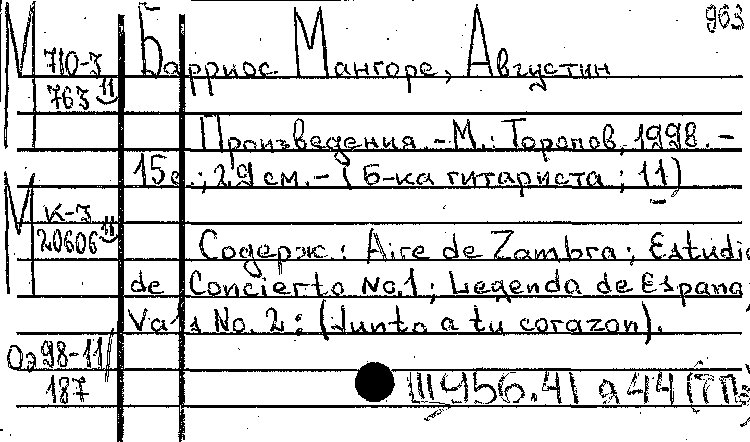 963
М 710-3 Барриос Мангоре, Августин
763 11
Произведения. - М.: Торопов, 1998. -
15с.; 29 см. - (Б-ка гитариста ; 11)
М К-3
20606 11
Содерж.: Aire de Zambra; Estudio
de Concierto No.1; Legenda de Espana;
Vals No. 2: (Junto a tu corazon).
Оэ 98-11/
187
Щ956.41 я44